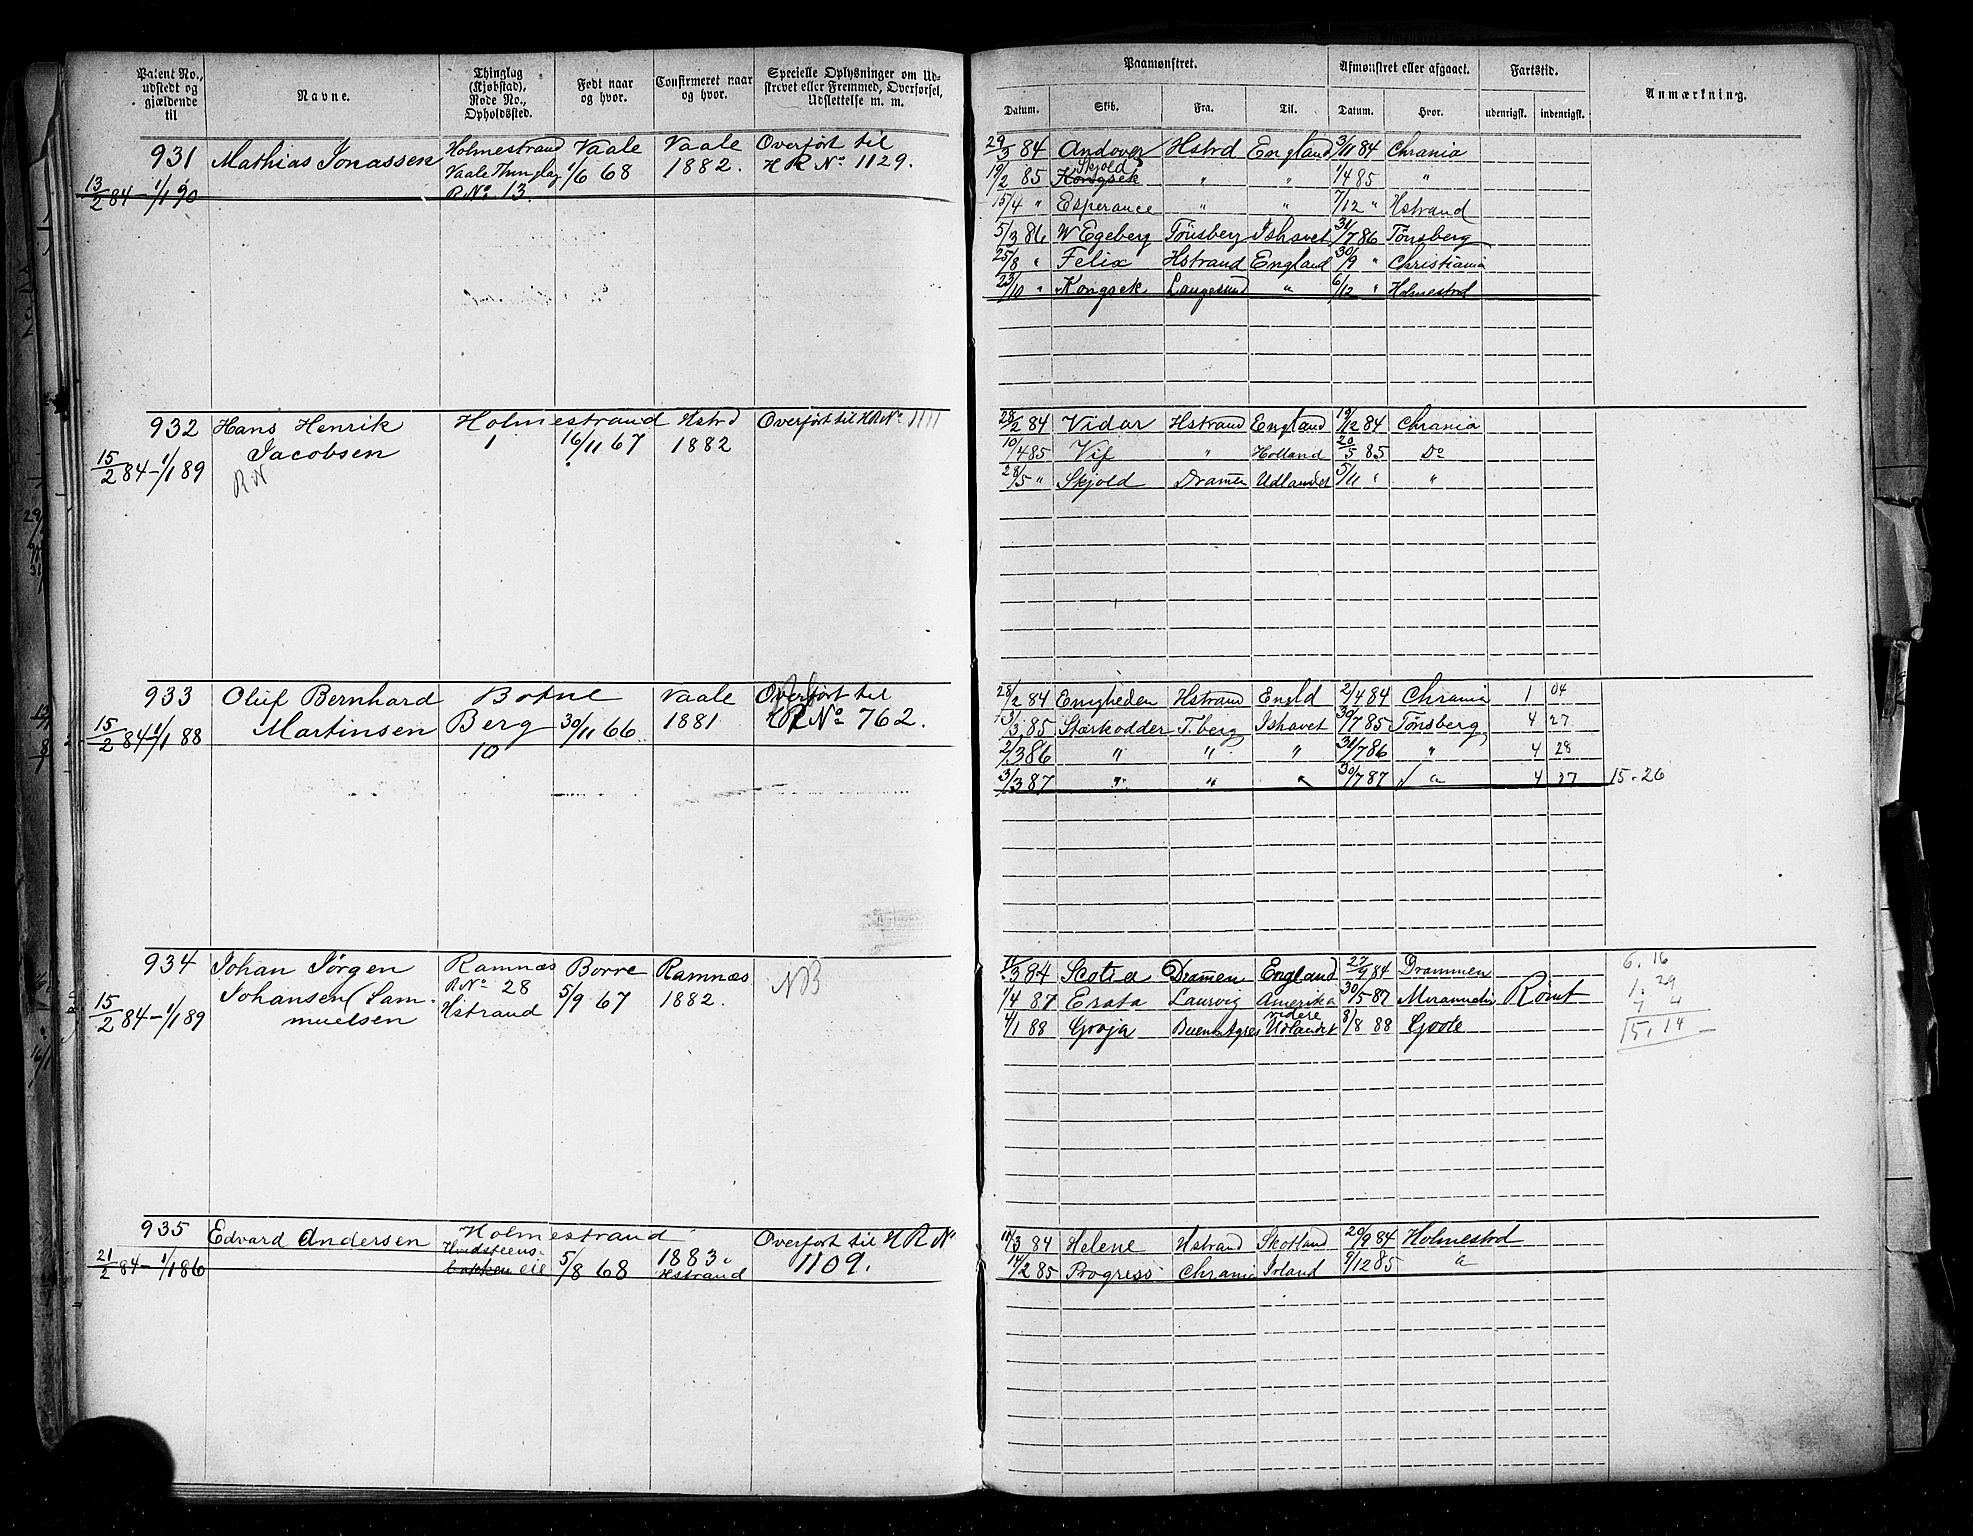 Patent No., udstedt og gjældende til | Navne. | Thinglag (Kjøbstad), Rode No., Opholdssted. | Født naar og hvor. | Confirmeret naar og hvor. | Specielle Oplysninger om Udskrevet eller Fremmed, Overførsel, Udslettelse m. m.
931 Mathias Jonassen Holmestrand Vaale Vaale Overført til
Vaale Thinglag 1/6 68 1882. H R No 1129.
13/2 84 - 1/1 90 R No. 13.
932 Hans Henrik Holmestrand Hstrd Overført til H R No 1111
Jacobsen 1 16/11 67 1882
15/2 84 - 1/1 89 R N
933 Oluf Bernhard Botne Vaale Overført til
15/2 84 - 1/1 88 Martinsen Berg 30/11 66 1881 H R No 762.
10
934 Johan Jørgen Ramnæs Borre Ramnæs NB
15/2 84 - 1/1 89 Johansen (Sam- R No 28 5/9 67 1882.
muelsen Hstrand
935 Edvard Andersen Holmestrand Overført til H R No
21/2 84 - 1/1 86 5/8 68 1883. 1109.
eie Hstrand
Paamønstret. | Afmønstret eller afgaaet. | Fartstid. | Anmærkning.
Datum. | Skib. | Fra. | Til. | Datum. | Hvor. | udenrigsk. | indenrigsk.
29/3 84 Andover Hstrd England 3/11 84 Chrania
19/2 85 Kongsek Skjold " " 1/4 85 "
15/4 " Esperance " " 7/12 " Hstrand
5/3 86 W Egeberg Tönsberg Ishavet 31/7 86 Tønsberg
25/8 " Felix Hstrand England 30/9 " Christiania
23/10 " Kongsek Langesund " 6/12 " Holmestrd
28/2 84 Vidar Hstrand England 19/12 84 Chrania
10/4 85 Vif " Holland 20/5 85 Do
28/5 " Skjold Dramen Udlandet 5/11 " "
28/2 84 Enigheden Hstrand Engld 2/4 84 Chrania 1 04
3/3 85 Stærkodder T.berg Ishavet 30/7 85 Tönsberg 4 27
2/3 86 " " " 31/7 86 " 4 28
3/3 87 " " " 30/7 87 " 4 27 15-26
11/3 84 Scotia Dramen England 27/9 84 Drammen 6. 16
1/4 87 Erata Laurvig Amerika 30/5 87 Miramichi Rømt 1. 29
videre 7 4
4/1 88 Groja Buenos Ayres Udlandet 8/8 88 Goole 15, 14
11/3 84 Helene Hstrand Skotland 20/9 84 Holmestrd
14/2 85 Progress Chrania Irland 9/12 85 "